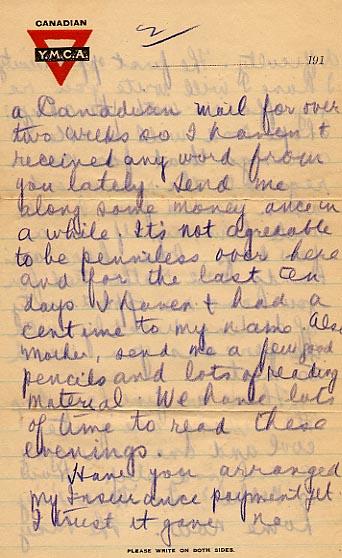 CANADIAN
Y.M.C.A.
2
191
a Canadian mail for over
two weeks so I haven't
received any word from
you lately. Send me
along some money once in
a while. It's not agreeable
to be penniless over here
and for the last ten
days I haven't had a
centime to my name. Also
Mother, send me a few good
pencils and lots of reading
material. We have lots
of time to read these
evenings.
Have you arranged
my Insurance payment yet.
I trust it gave no
PLEASE WRITE ON BOTH SIDES.